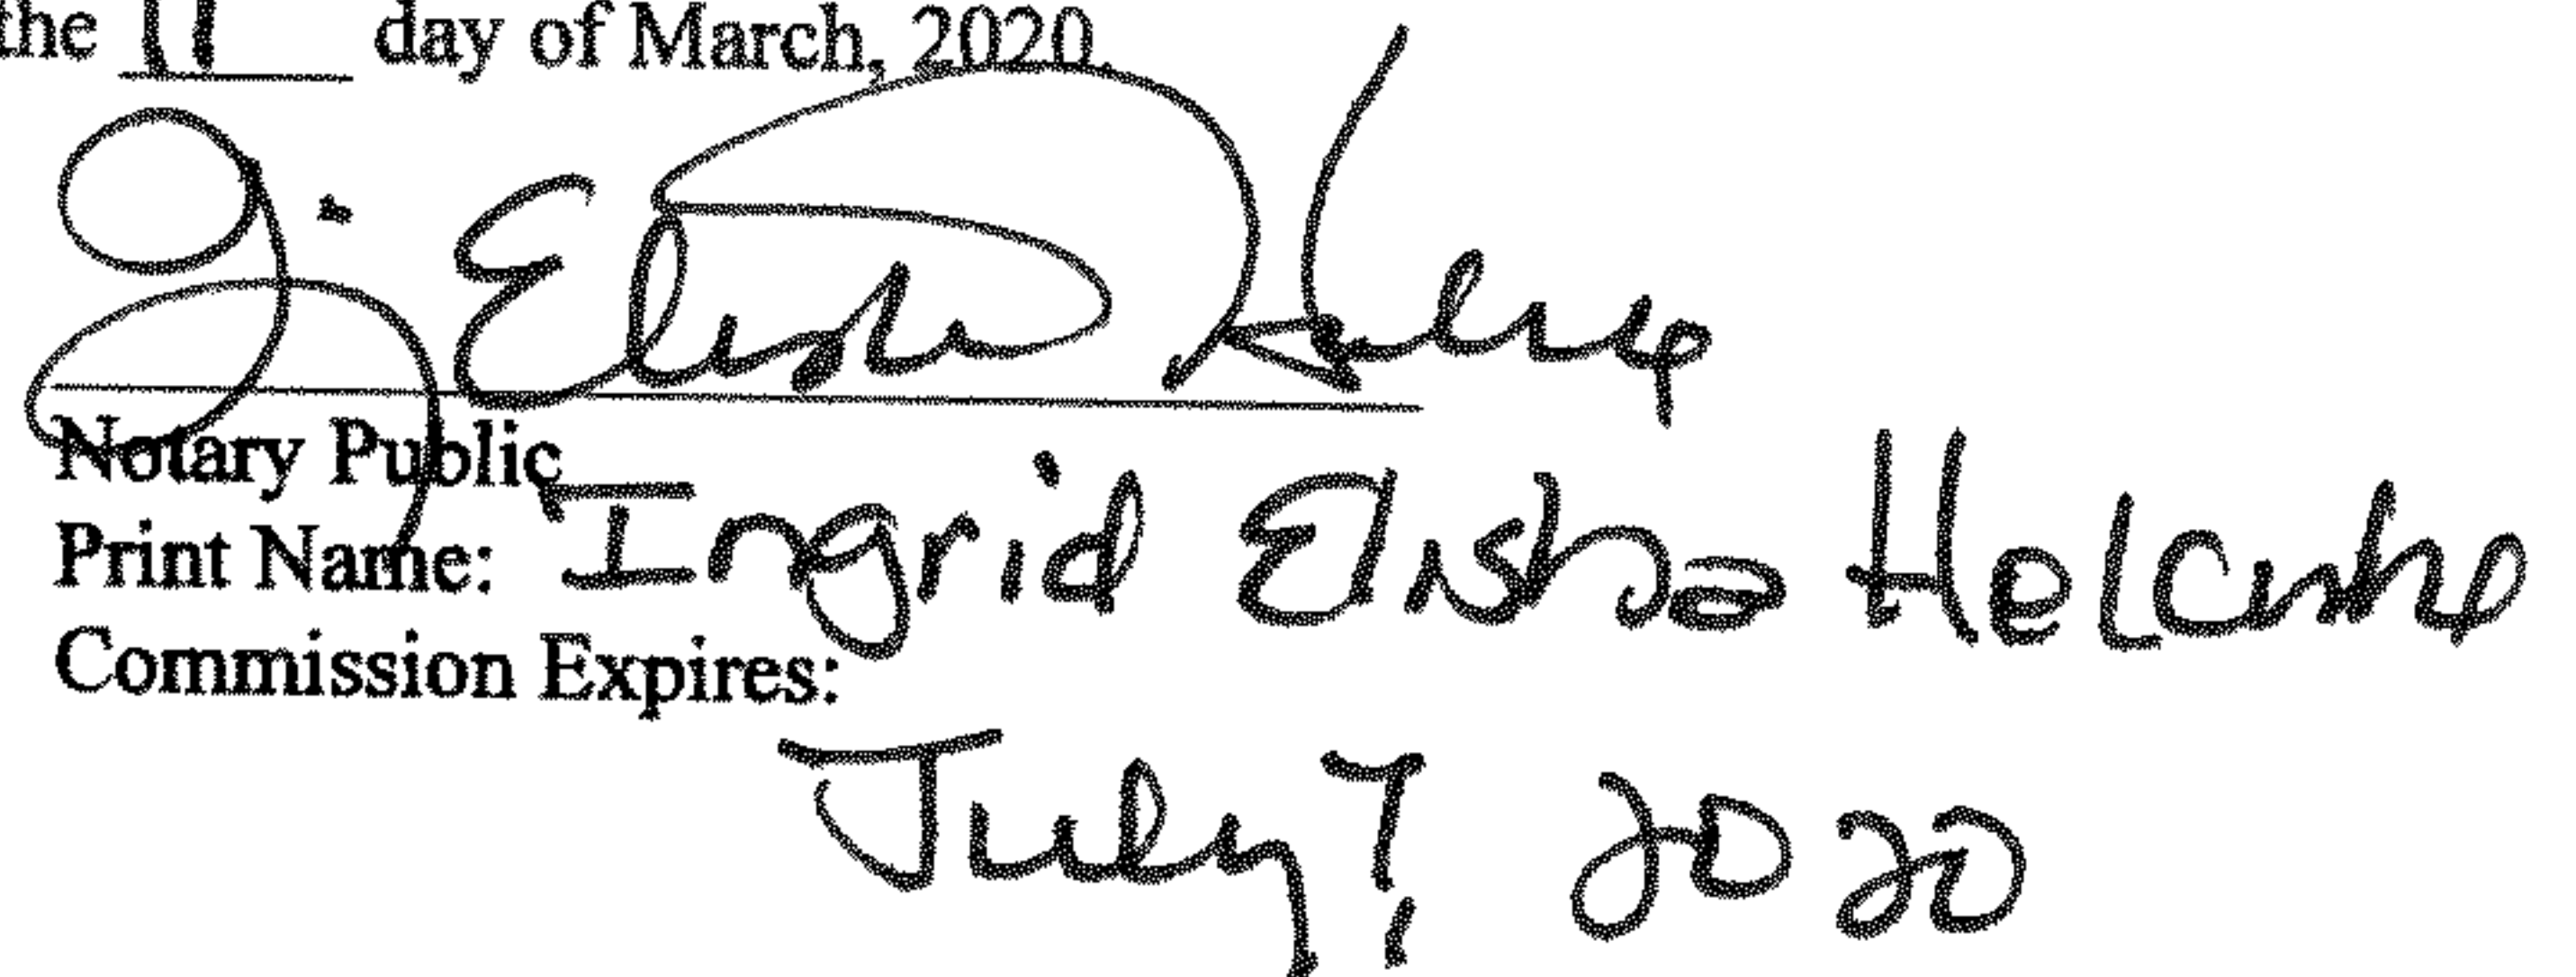 the 11 day of March, 2020.
I. Elisha
Notary Public
Print Name: Ingrid Elisha
Commission Expires:
July 7, 2020